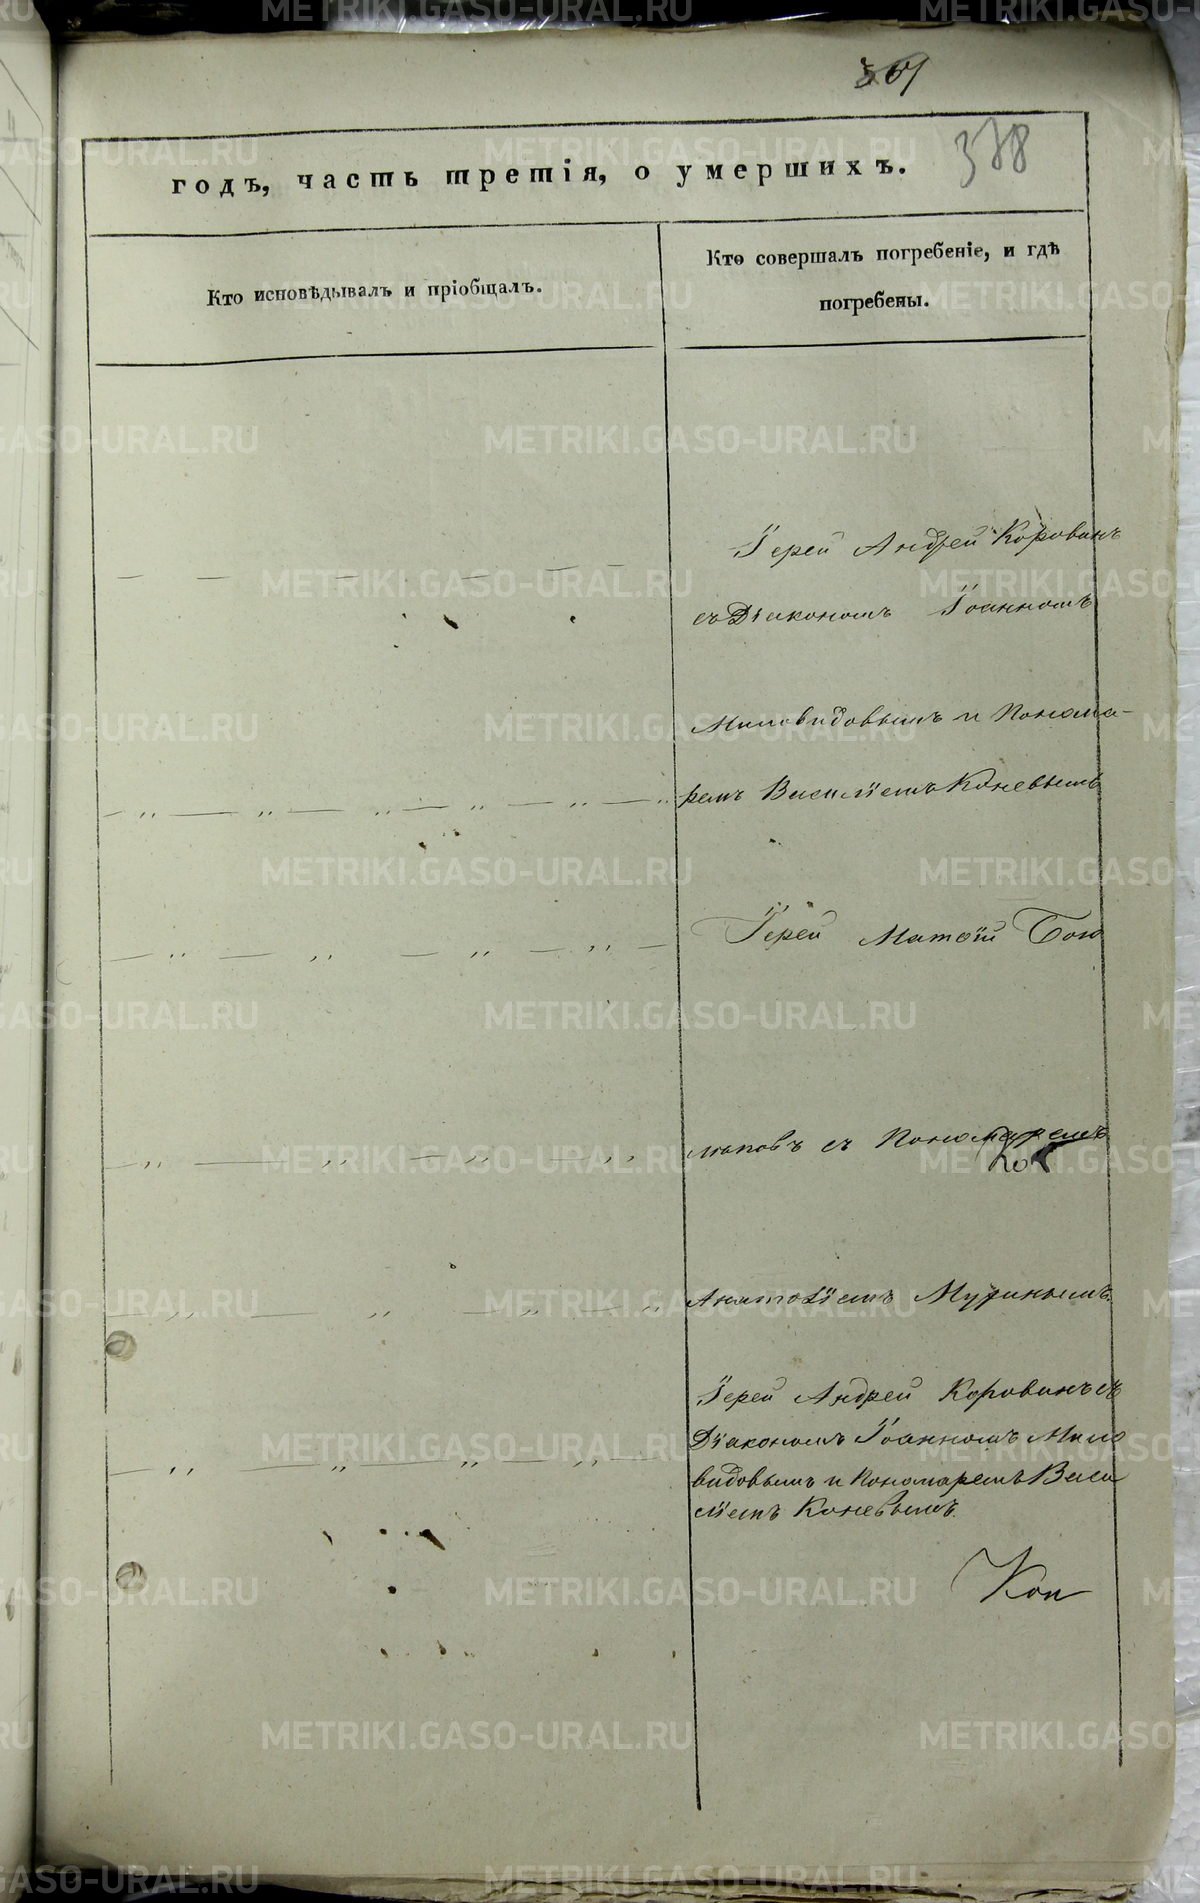 301
378
годъ, часть третія, о умершихъ.
Кто исповѣдывалъ и пріобщалъ.
Кто совершалъ погребеніе, и гдѣ
погребены.
Іерей Андрей Коровинъ
съ Діакономъ Іоанномъ
Миловидовымъ и Понома-
ремъ Василіемъ Коневымъ
Іерей Матѳій Бого
моловъ съ Пономаремъ
Анатоліемъ Муринымъ.
Іерей Андрей Коровинъ съ
Діакономъ Іоанномъ Мило
видовымъ и Пономаремъ Васи
ліемъ Коневымъ.
METRIKI.GASO-URAL.RU